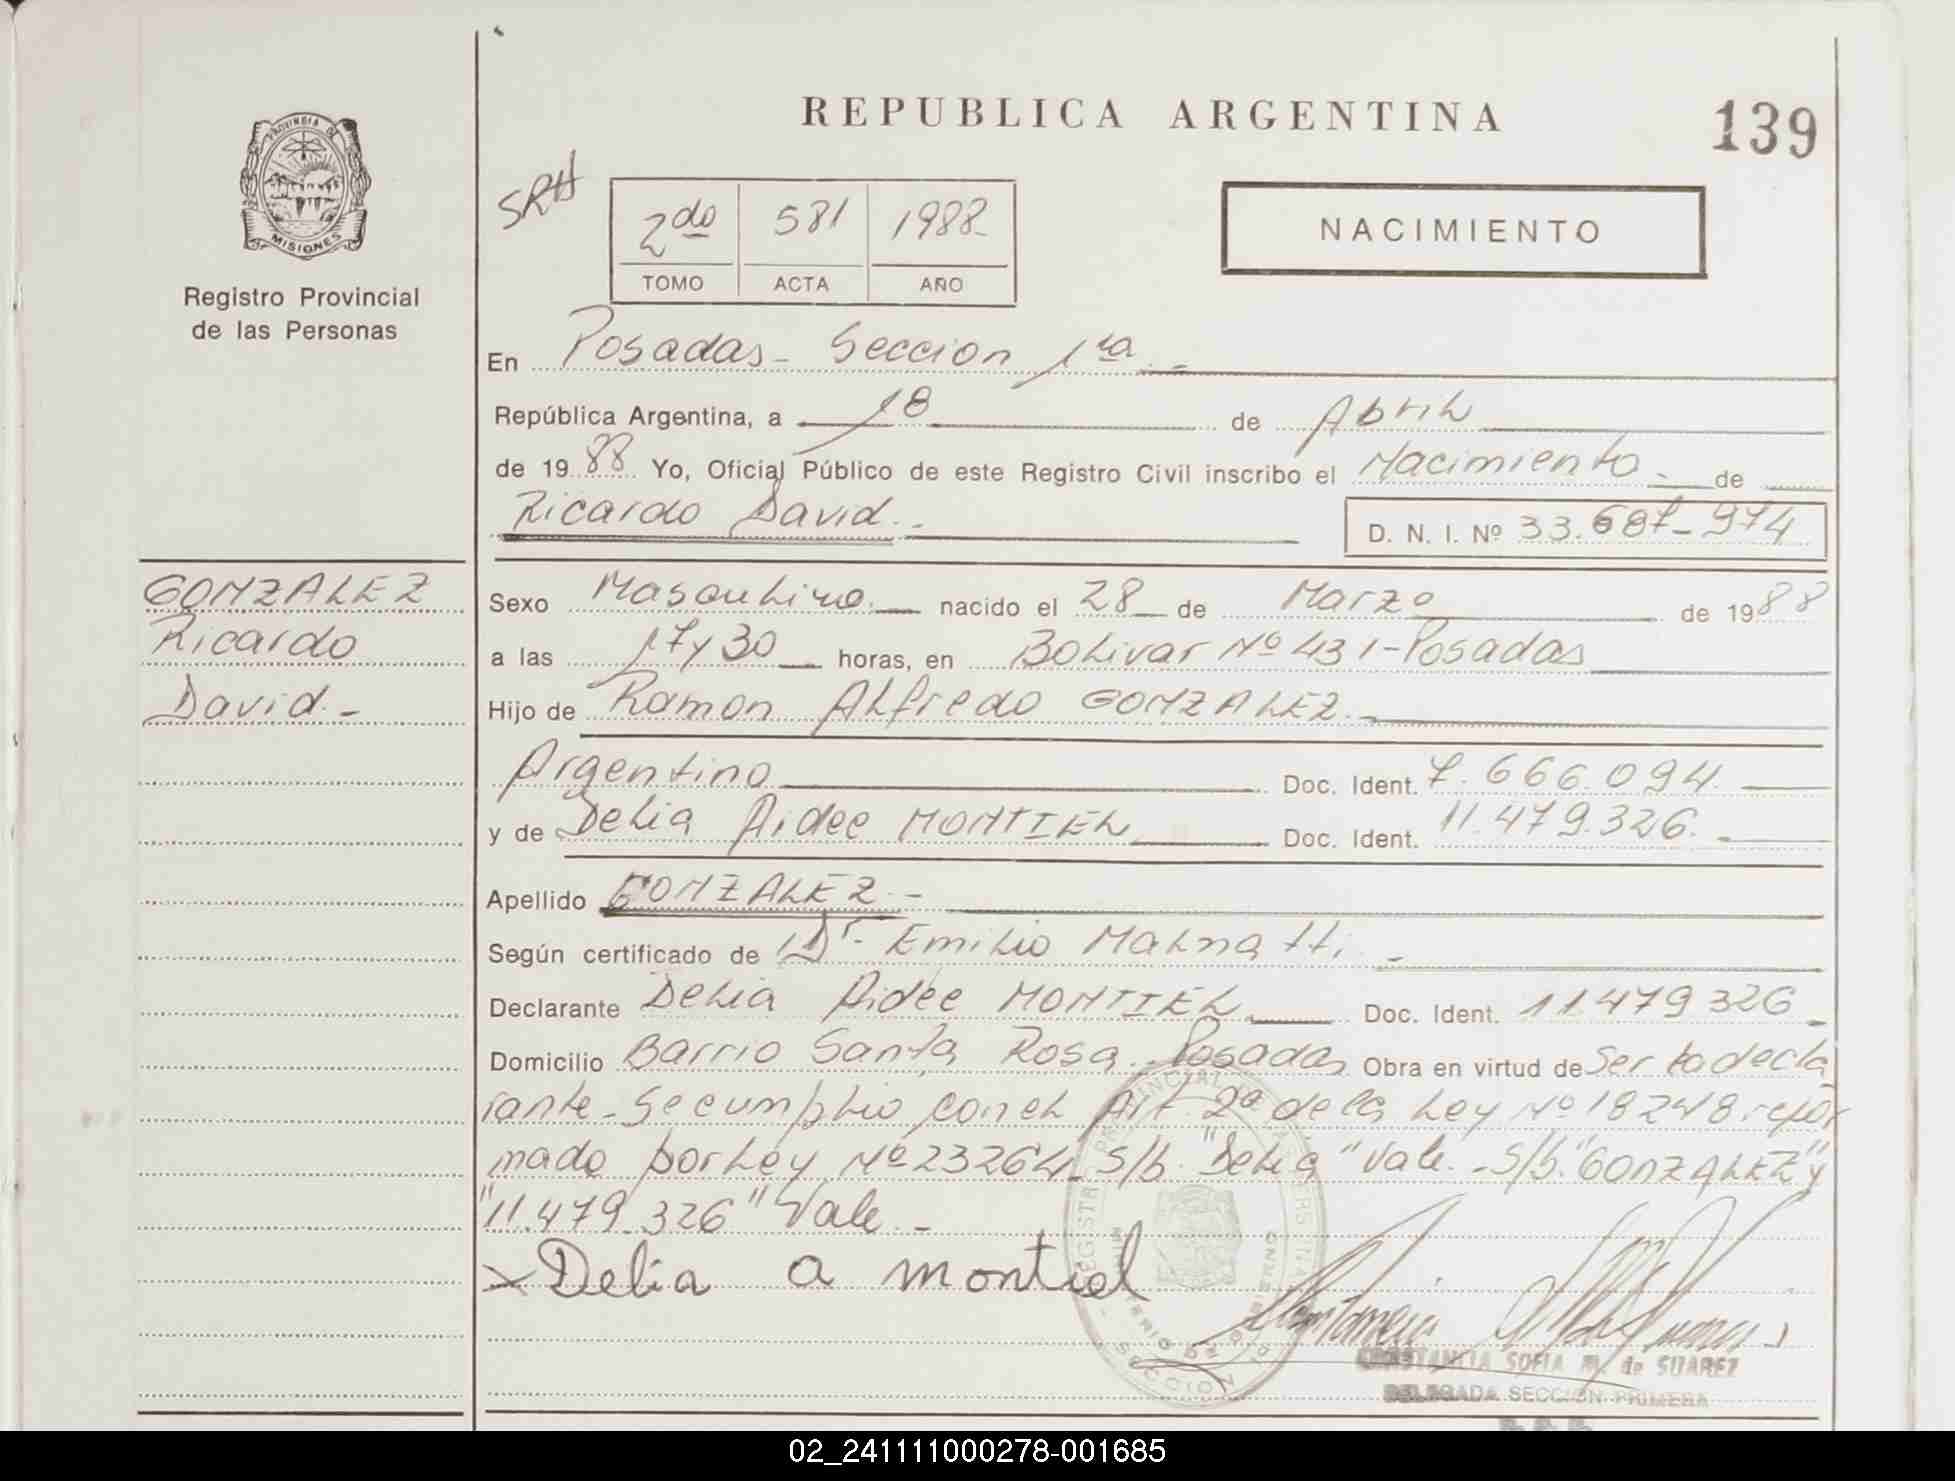 REPUBLICA ARGENTINA
139
PROVINCIA DE
MISIONES
Registro Provincial
de las Personas
SRH
2do 581 1988
TOMO ACTA AÑO
NACIMIENTO
En Posadas - Seccion 1ra. -
República Argentina, a 18 de Abril
de 1988 Yo, Oficial Público de este Registro Civil inscribo el Nacimiento - de
Ricardo David. -
D. N. I. Nº 33.687-974
GONZALEZ
Ricardo
David. -
Sexo Masculino. nacido el 28 de Marzo de 1988
a las 17 y 30 horas, en Bolivar Nº 431 - Posadas
Hijo de Ramon Alfredo GONZALEZ. -
Argentino Doc. Ident. 7.666.094.
y de Delia Aidee MONTIEL Doc. Ident. 11.479.326. -
Apellido GONZALEZ. -
Según certificado de Dr. Emilio Malnatti. -
Declarante Delia Aidee MONTIEL Doc. Ident. 11.479326 -
Domicilio Barrio Santa Rosa. Posadas Obra en virtud de Ser la decla
rante - Se cumplio con el Art. 2º de la Ley Nº 18248 refor
mado por Ley Nº 23264 - S/b. "Delia" Vale. - S/b. "GONZALEZ" y
"11.479.326" Vale. -
x Delia a montiel
CONSTANCIA SOFIA M. de SUAREZ
DELEGADA SECCION PRIMERA
02_241111000278-001685